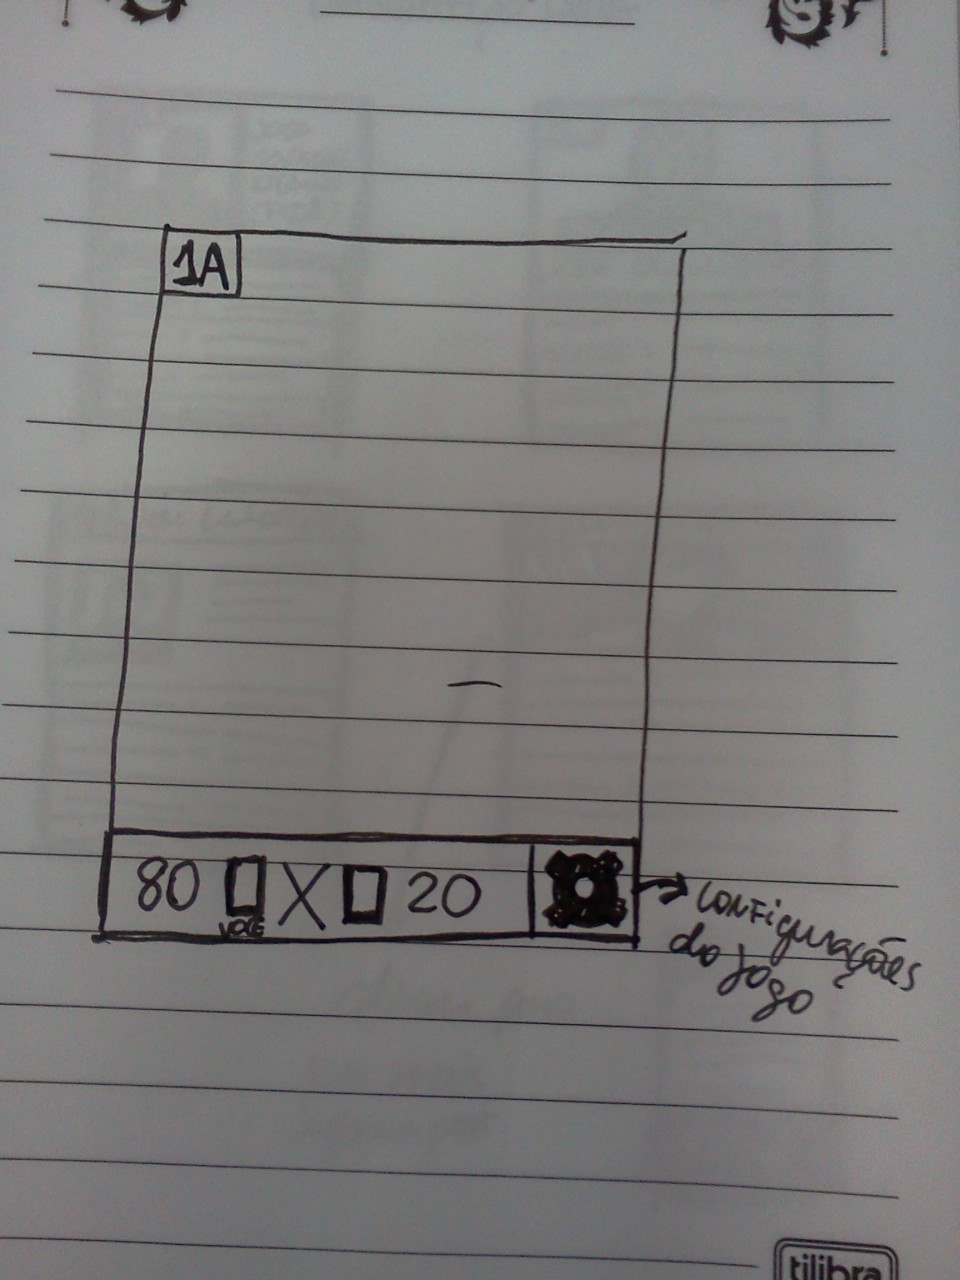 1A
80 X 20
VOCÊ
configurações
do jogo
tilibra